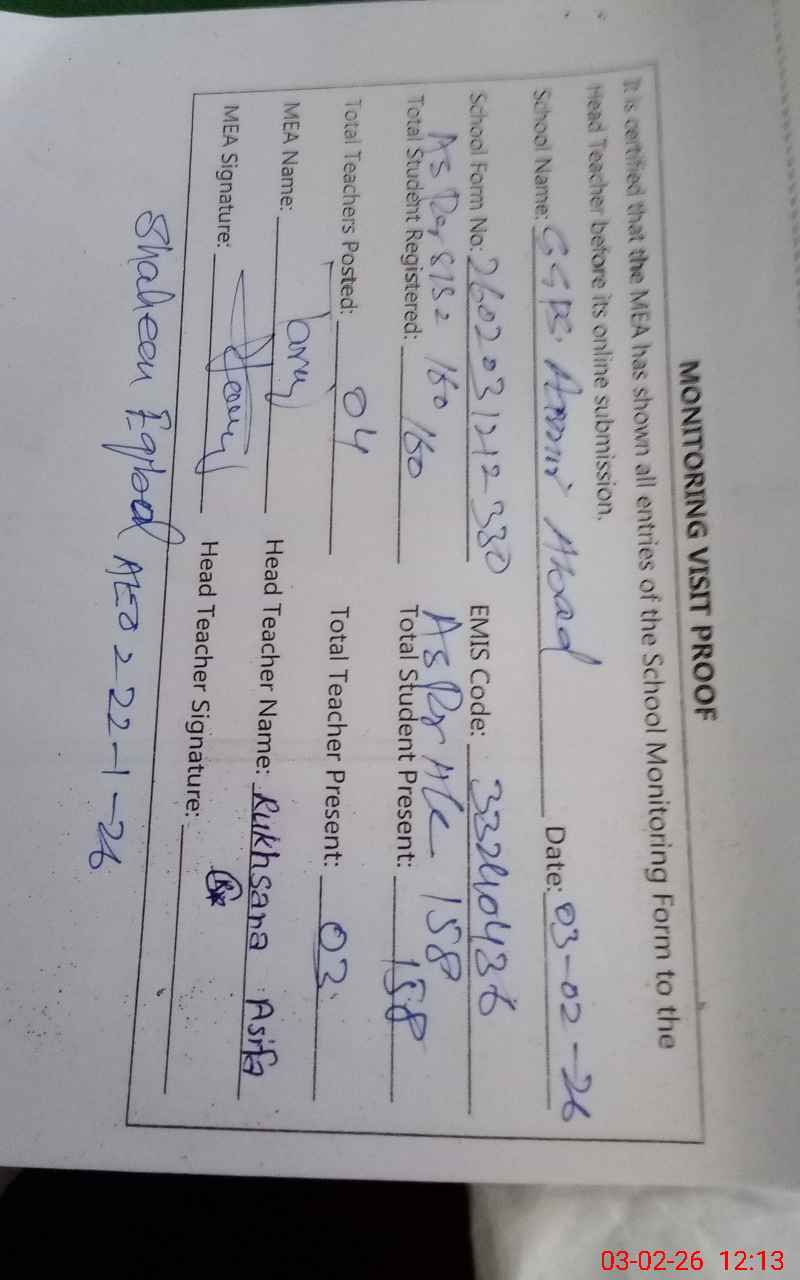 MONITORING VISIT PROOF
It is certified that the MEA has shown all entries of the School Monitoring Form to the
Head Teacher before its online submission.
School Name: GGPS. Amir Abad Date: 03-02-26
School Form No: 2602031212330 EMIS Code: 33240436
As Per SIS = 160 As Per 158
Total Student Registered: 160 Total Student Present: 158
Total Teachers Posted: 04 Total Teacher Present: 03
MEA Name: Head Teacher Name: Rukhsana Asifa
MEA Signature: Head Teacher Signature:
Shaheen Eqbal AEO = 22-1-26
03-02-26 12:13